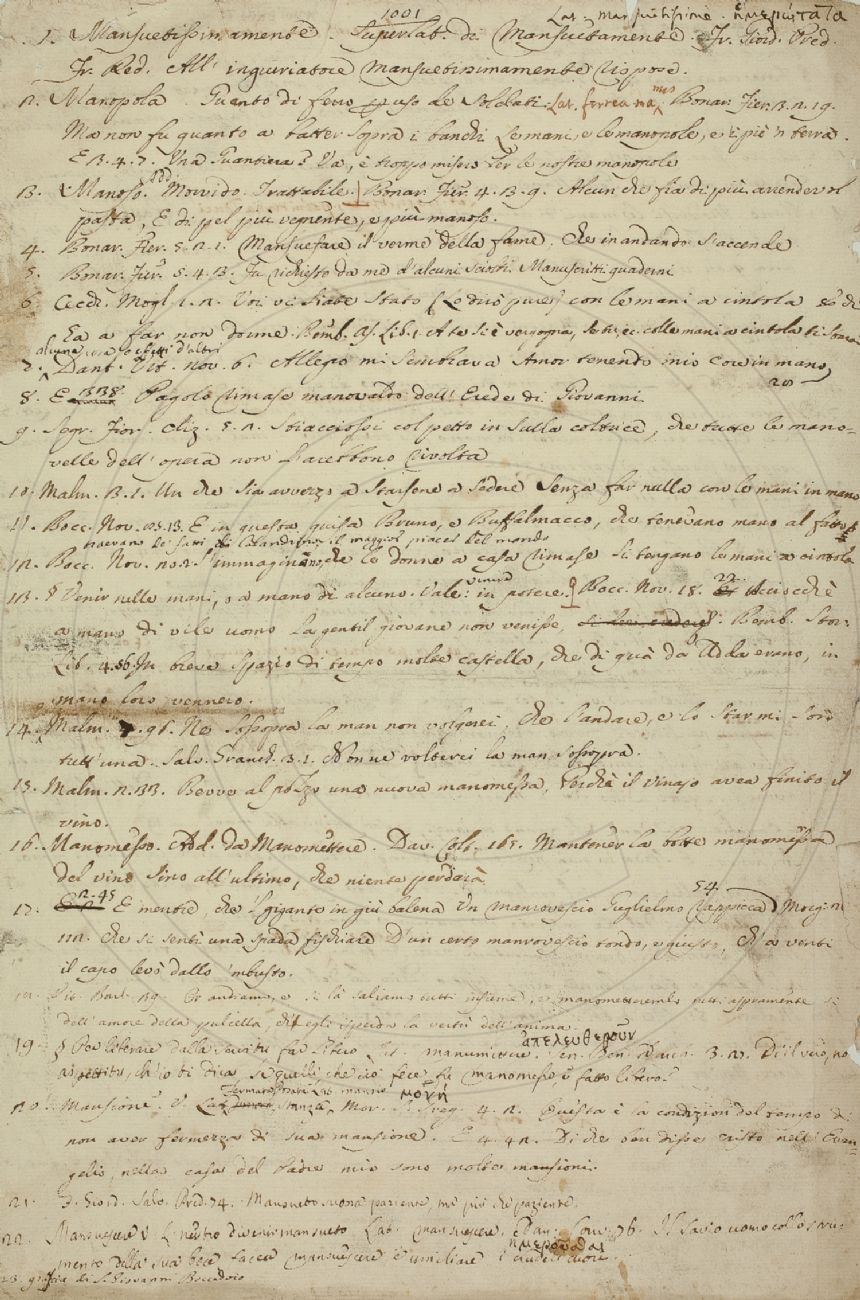 1001
Lat. mansuetissime. ἡμερώτατα
1. Mansuetissimamente. Superlat. di Mansuetamente. Fr. Giord. Pred.
Fr. Red. All' ingiuriatore mansuetissimamente rispose.
2. Manopola. Guanto di ferro uso de Soldati. Lat. ferrea manus Bonar. Fier. 3. 2. 19.
Ma non fu quanto a batter sopra i banchi Le mani, e le manopole, e i piè 'n terra.
E 3. 4. 7. Una Guantiera è va, è troppo misera Per le nostre manopole
3. Manoso. Add. Morvido. Trattabile. Bonar. Fier. 4. 3. 9. Alcun che sia di più arrendevol
pasta, E di pel più vegnente, e più manoso.
4. Bonar. Fier. 5. 2. 1. Mansuefare il verme della fame, che in andando s'accende
5. Bonar. Fier. 5. 4. 3. Fu richiesto da me d'alcuni sciolti Manuscritti quaderni
6. Cecch. Mogl. 1. 2. Voi vi siate stato (Le due pure) con le mani a cintola
Ea a far non dorme. Bemb. As. Lib. 1. A te si è vergogna, colle mani a cintola ti starai
7. Dant. Vit. Nov. 6. Allegro mi sembrava Amor tenendo mio Core in mano,
8. E 338. Pagolo rimase manovaldo dell' Erede di Giovanni
9. Segr. Fior. Cliz. 5. 2. Stiacciossi col petto in sulla coltrice, che tutte le mano-
velle dell' opera non l'arebbono rivolta
10. Malm. 3. 1. Un che sia avvezzo a starsene a sedere Senza far nulla con le mani in mano
11. Bocc. Nov. 85. 13. E in questa guisa Bruno, e Buffalmacco, che tenevano mano al fatto
traevano de' fatti di Calandrino il maggior piacer del mondo
12. Bocc. Nov. S'immaginano, che le donne a casa rimase si tengano le mani a cintola
13. § Venir nelle mani, o a mano di alcuno. Vale: venire in potere. Bocc. Nov. 18. 22. Acciocchè
a mano di vile uomo la gentil giovane non venisse. Bemb. Stor.
Lib. 4. 56. In breve spazio di tempo molte castella, che di quà da Adda erano, in
mano loro vennero.
14. Malm. 4. 96. Ne sossopra la man non volgerei, che l'andare, e lo star mi son
tutt' una. Salv. Granch. 3. 1. Non ne volterei la man sossopra.
15. Malm. 2. 33. Bevve al pozzo una nuova manomessa, Perchè il vinajo avea finito il
vino.
16. Manomesso. Add. da Manomettere. Dav. Colt. 165. Mantener la botte manomessa
del vino sino all' ultimo, che niente perderà
17. 2. 45 E mentre, che 'l gigante in giù balena Un manrovescio Guglielmo rappicca. 54. Morg. 21
122. che si sentì una spada fischiare D'un certo manrovescio tondo, e giusto, ch' a venti
il capo levò dallo 'mbusto.
18. Or andiamo, e si la saliamo tutti insieme, e manometteremla sì aspramente
dell' amore della pulcella, ch' egli isperde la vertù dell' anima.
19. § Per liberare dalla servitù far libero. Lat. manumittere. ἀπελευθεροῦν Sen. Ben. Varch. 3. 23. Di il vero, no
aspettitu, ch'io ti dica se quelli, che ciò fece, fu manomesso, e fatto libero?
20. Mansione. V. Fermata Stanza Lat. mansio. μονή Mor. S. Greg. 4. 2. Questa è la condizion del tempo di
non aver fermezza di sua mansione. E 4. 42. Di che ben disse cristo nell' Evan-
gelio, nella casa del Padre mio sono molte mansioni.
21. F. Giord. Salv. Pred. 74. Mansueto suona paziente, me più che paziente.
22. Mansuescere V. L. neutro divenir mansueto Lat. mansuescere. ἡμεροῦσθαι Cav. Il savio uomo collo stru-
mento della sua bocca facea mansuescere e umiliare i crudeli cuori.
23. grazia di S. Giovanni Boccadoro